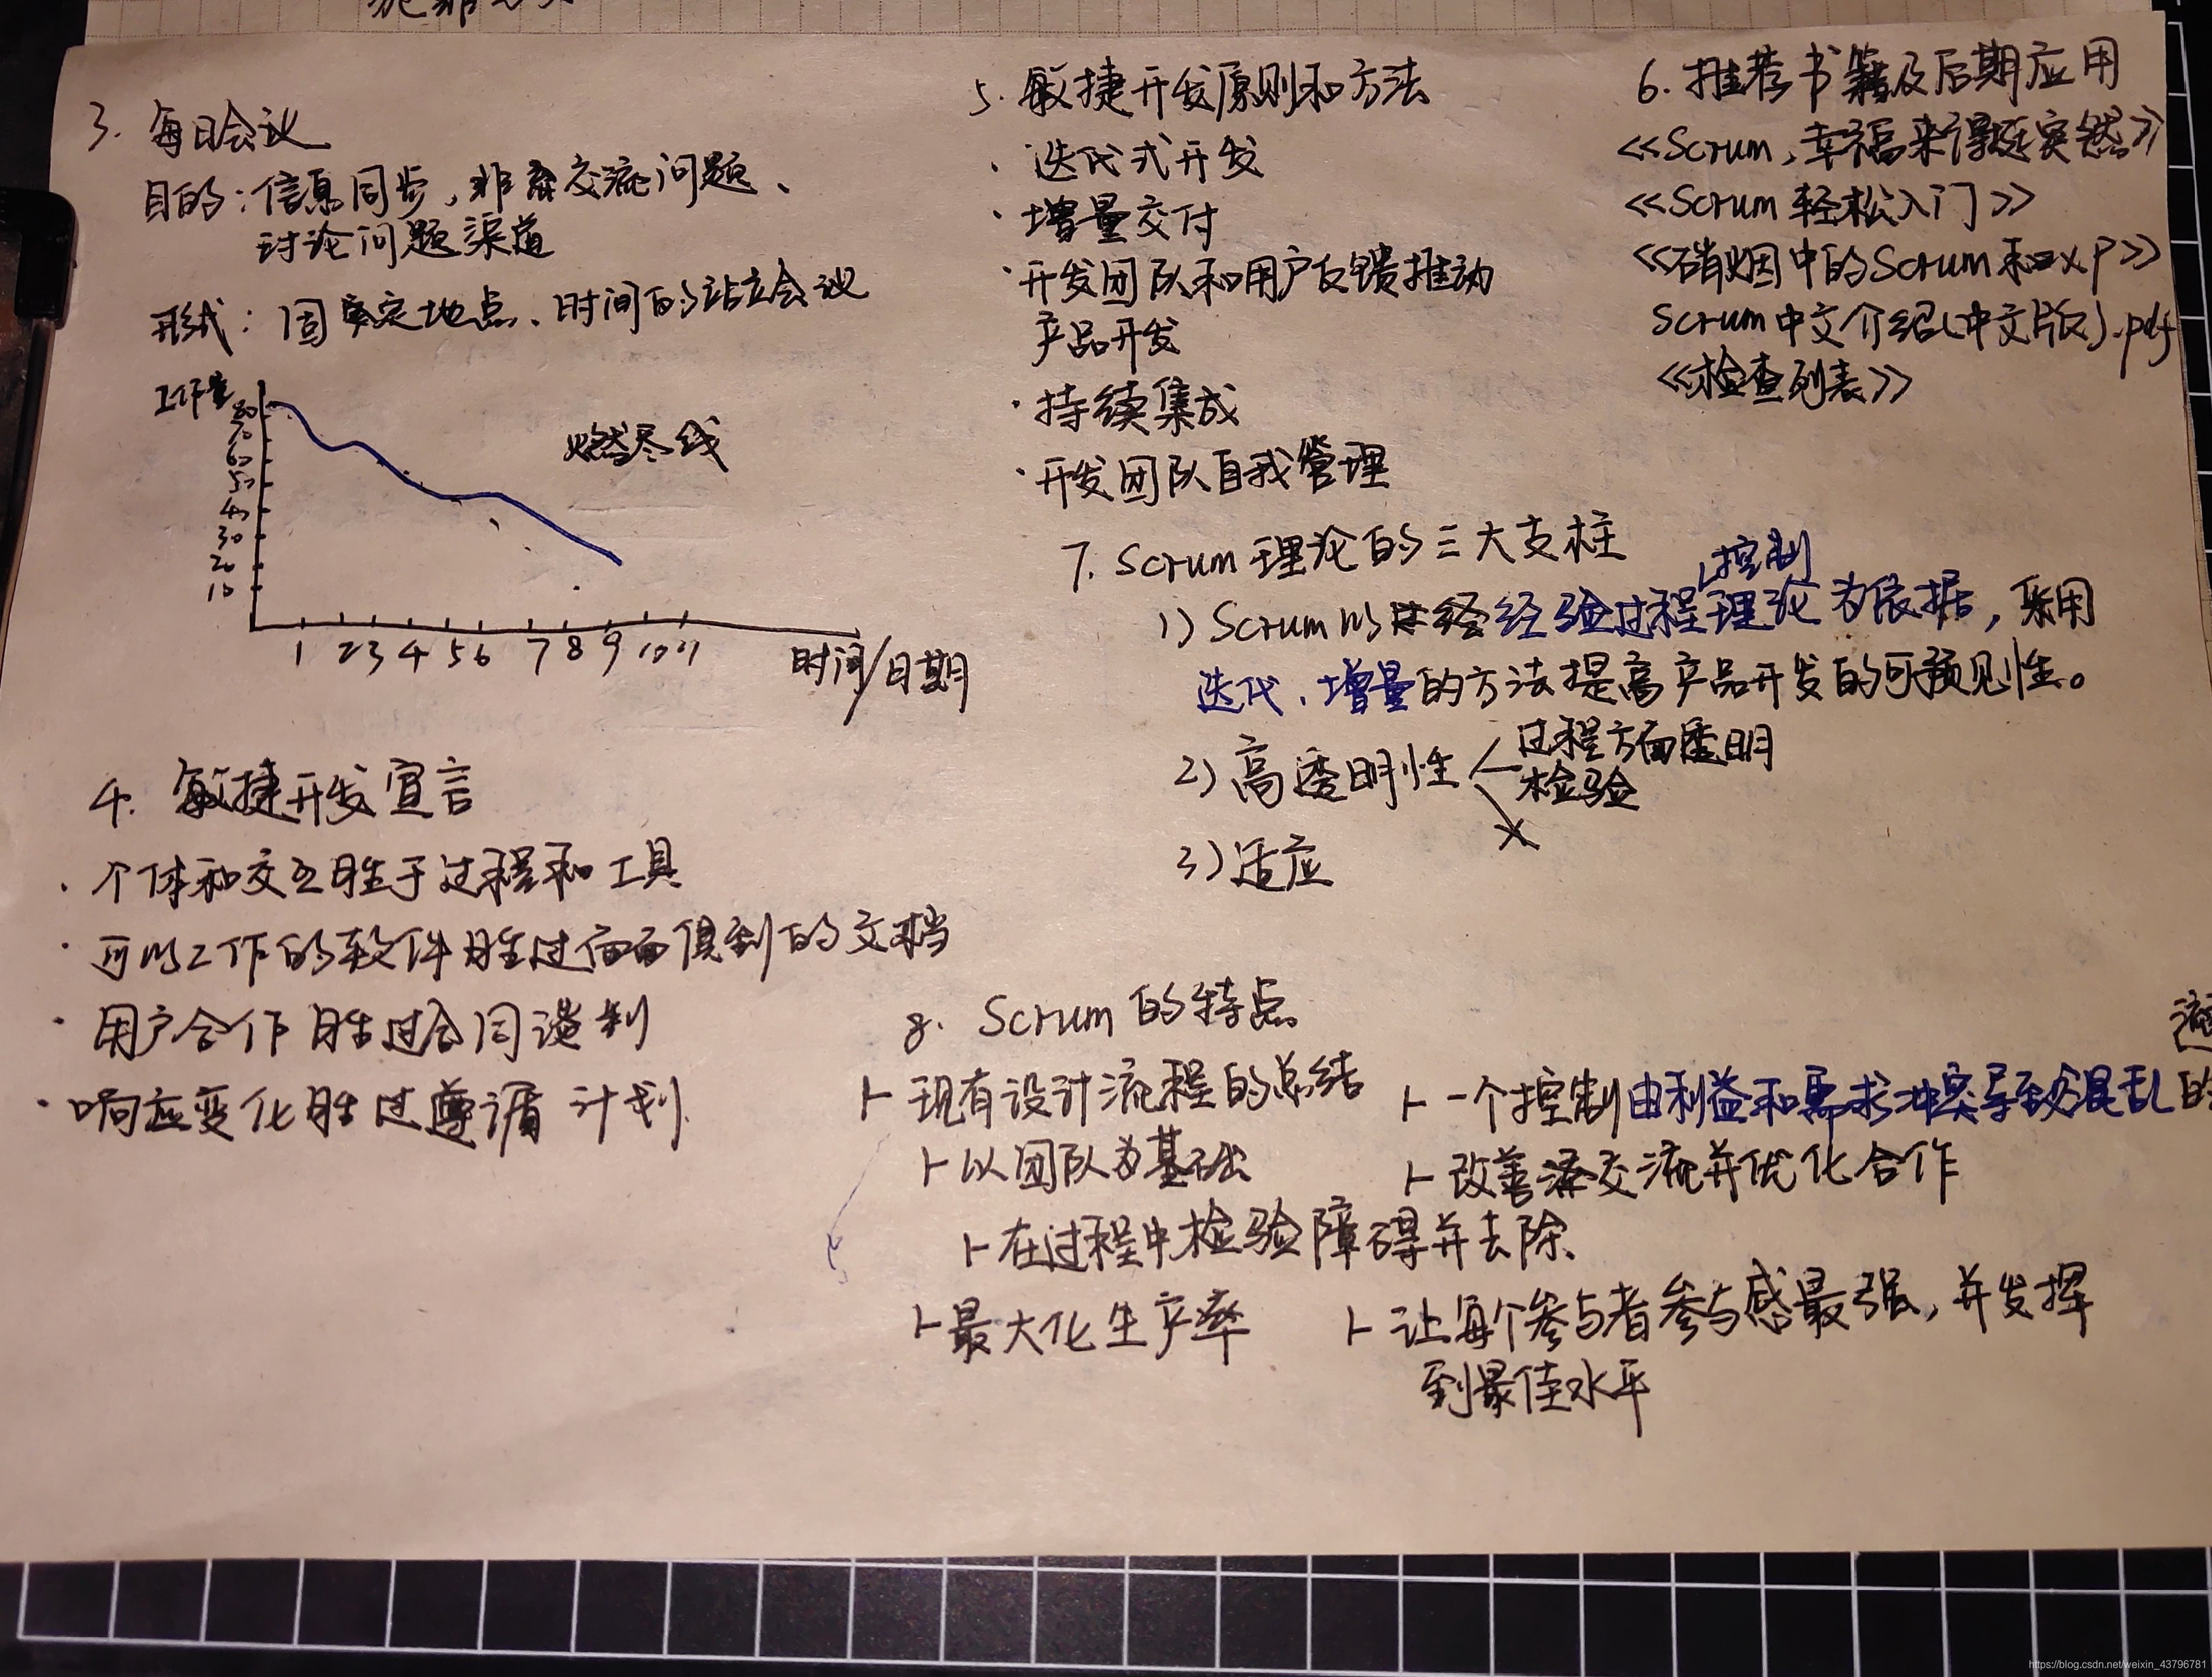 3. 每日会议
目的:信息同步,非交流问题、
讨论问题渠道
形式:固定地点、时间的站立会议
工作量
80
70
60
50
40
30
20
10
燃尽线
1 2 3 4 5 6 7 8 9 10 11
时间/日期
4. 敏捷开发宣言
· 个体和交互胜于过程和工具
· 可以工作的软件胜过面面俱到的文档
· 用户合作胜过合同谈判
· 响应变化胜过遵循计划
5. 敏捷开发原则和方法
· 迭代式开发
· 增量交付
· 开发团队和用户反馈推动
产品开发
· 持续集成
· 开发团队自我管理
6. 推荐书籍及后期应用
<<Scrum,幸福来得突然>>
<<Scrum 轻松入门>>
<<硝烟中的Scrum和XP>>
Scrum中文介绍(中文版).pdf
<<检查列表>>
7. Scrum理论的三大支柱
控制
1) Scrum以经验过程理论为依据,采用
迭代、增量的方法提高产品开发的可预见性。
2) 高透明性
过程方面透明
检验
3) 适应
8. Scrum的特点
现有设计流程的总结
以团队为基础
在过程中检验障碍并去除
最大化生产率
一个控制由利益和需求冲突导致混乱的
改善交流并优化合作
让每个参与者参与感最强,并发挥
到最佳水平
https://blog.csdn.net/weixin_43796781